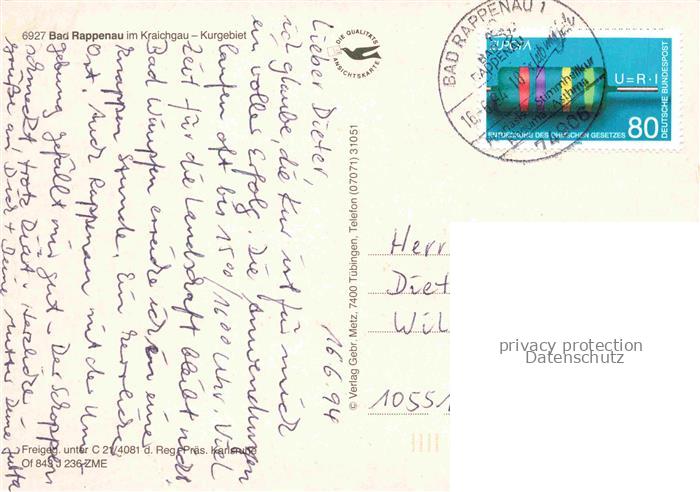 6927 Bad Rappenau im Kraichgau – Kurgebiet
DIE QUALITÄTS
ANSICHTSKARTE
16.6.94
Lieber Dieter,
ich glaube, die Kur ist für mich
ein voller Erfolg. Die Anwendungen
laufen oft bis 1500/1600 Uhr. Viel
Zeit für die Landschaft bleibt nicht.
Bad Wimpfen erreiche ich in einer
knappen Stunde. Ein herrlicher
Ort. Auch Rappenau mit der Um-
gebung gefällt mir gut. Der Schoppen
schmeckt trotz Diät. Herzliche
Grüße an Dich + Deine Mutter Deine Jutta
Freigeg. unter C 21/4081 d. Reg.-Präs. Karlsruhe
Of 843 J 236 ZME
© Verlag Gebr. Metz, 7400 Tübingen, Telefon (07071) 31051
BAD RAPPENAU 1
74906
EUROPA
U=R·I
ENTDECKUNG DES OHMSCHEN GESETZES
80
DEUTSCHE BUNDESPOST
Herr
Diet
Wil
1055
privacy protection
Datenschutz